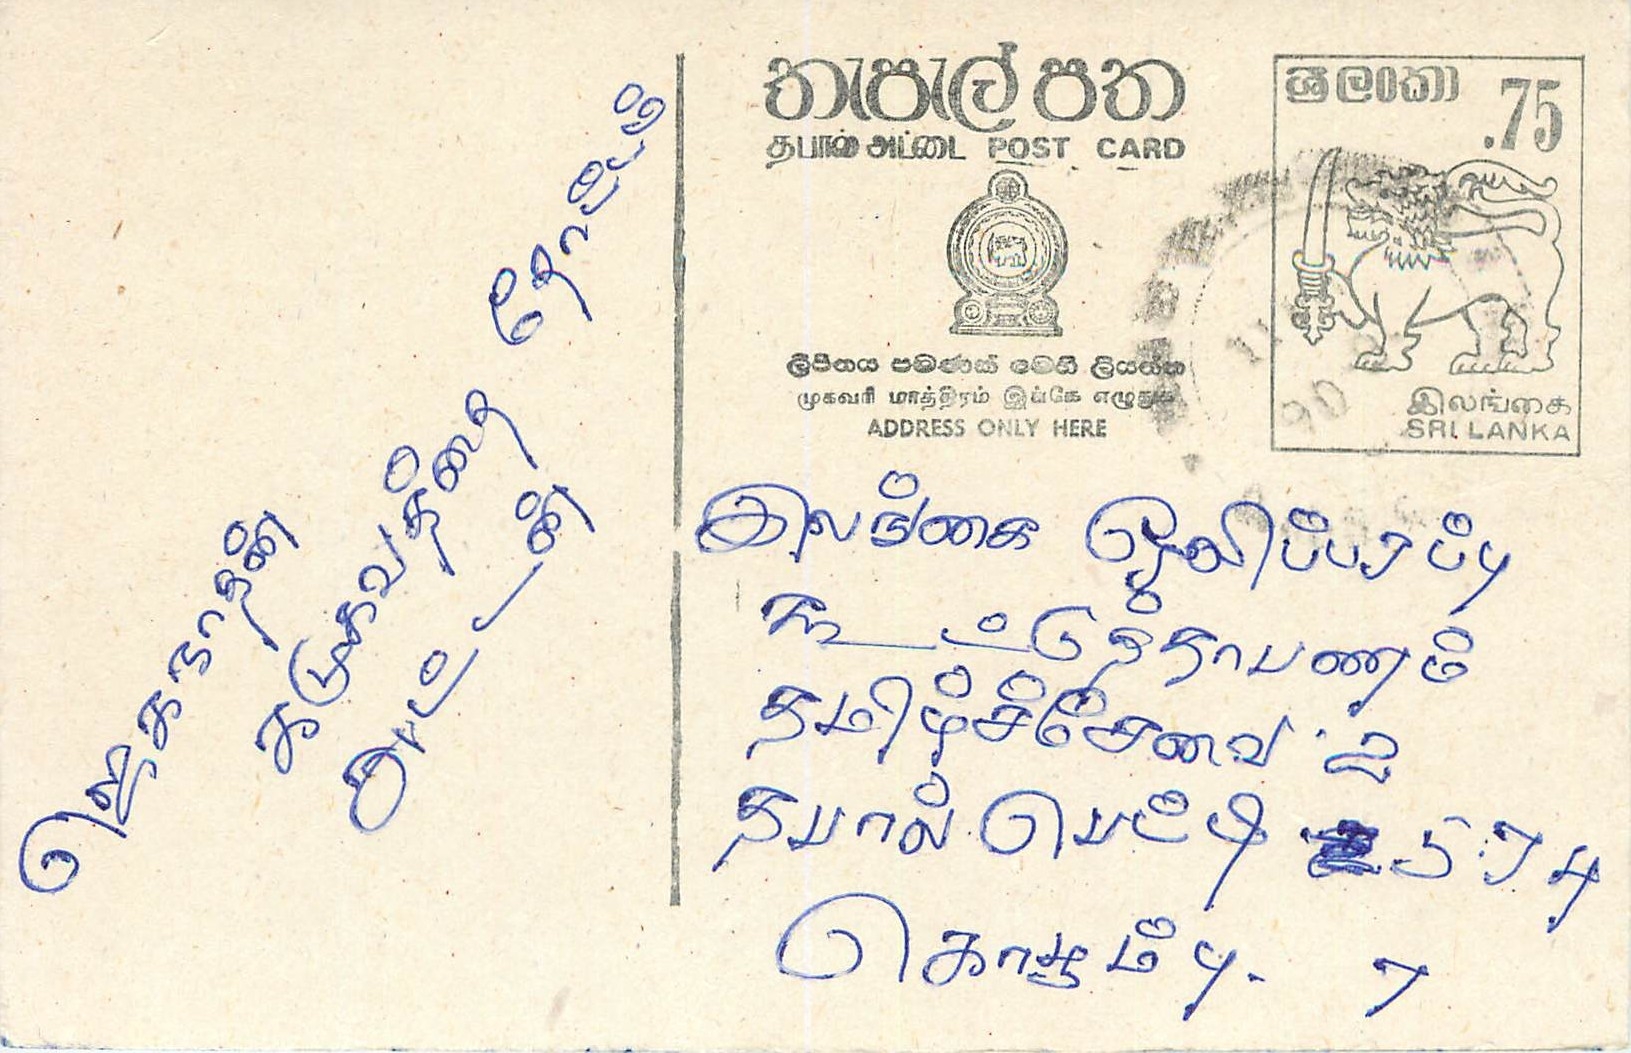 ஜெகநாதன்
தோட்டம்
තැපැල් පත
தபால் அட்டை POST CARD
ලිපිනය පමණක් මෙහි ලියන්න
முகவரி மாத்திரம் இங்கே எழுதுக
ADDRESS ONLY HERE
ශ්‍රී ලංකා .75
இலங்கை
SRI LANKA
90
இலங்கை ஒலிபரப்பு
கூட்டுத்தாபணம்
தமிழ்ச்சேவை 2
தபால் பெட்டி 574
கொழும்பு. 7